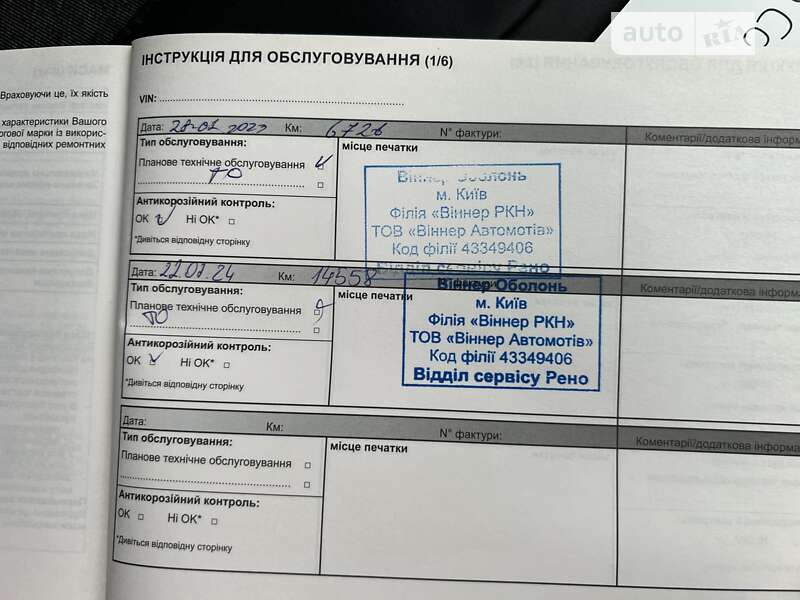 auto RIA
ІНСТРУКЦІЯ ДЛЯ ОБСЛУГОВУВАННЯ (1/6)
Враховуючи це, їх якість
характеристики Вашого
ргової марки із викорис-
відповідних ремонтних
VIN:
Дата: 28.07 2023 Км: 6726 N° фактури: Коментарі/додаткова інформа
Тип обслуговування:
Планове технічне обслуговування
ТО
Антикорозійний контроль:
ОК Ні ОК*
*Дивіться відповідну сторінку
місце печатки
Віннер Оболонь
м. Київ
Філія «Віннер РКН»
ТОВ «Віннер Автомотів»
Код філії 43349406
Відділ сервісу Рено
Дата: 22.07.24 Км: 14558 фактури: Коментарі/додаткова інформа
Тип обслуговування:
Планове технічне обслуговування
ТО
Антикорозійний контроль:
ОК Ні ОК*
*Дивіться відповідну сторінку
місце печатки
Віннер Оболонь
м. Київ
Філія «Віннер РКН»
ТОВ «Віннер Автомотів»
Код філії 43349406
Відділ сервісу Рено
Дата: Км: N° фактури: Коментарі/додаткова інформа
Тип обслуговування:
Планове технічне обслуговування
Антикорозійний контроль:
ОК Ні ОК*
*Дивіться відповідну сторінку
місце печатки